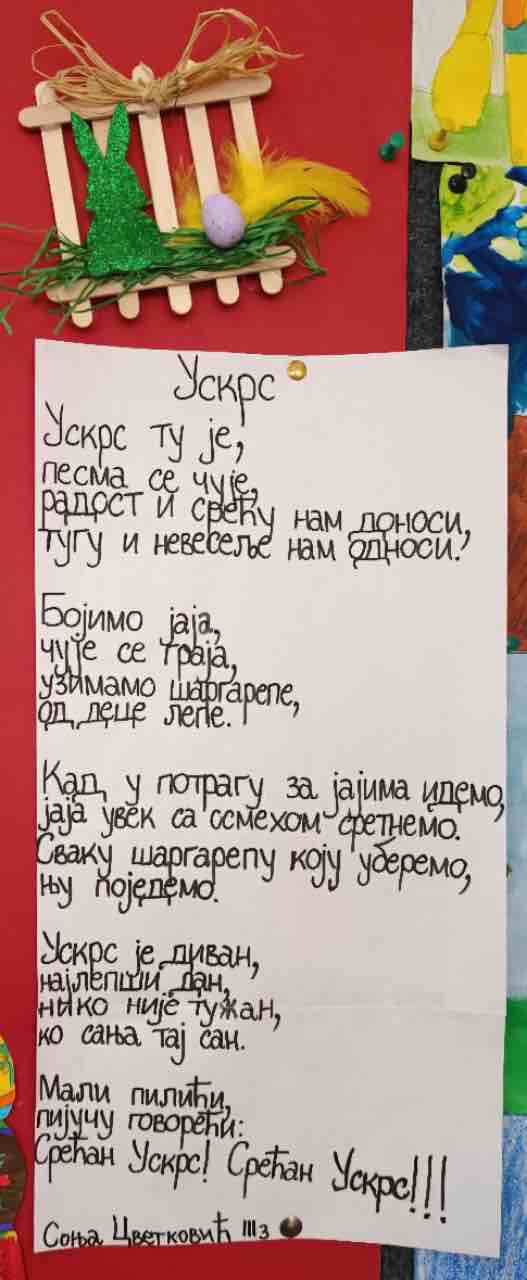 Ускрс
Ускрс ту је,
песма се чује,
радост и срећу нам доноси,
тугу и невесеље нам односи.
Бојимо јаја,
чује се граја,
узимамо шаргарепе,
од деце лепе.
Кад у потрагу за јајима идемо,
јаја увек са осмехом сретнемо.
Сваку шаргарепу коју уберемо,
њу поједемо.
Ускрс је диван,
најлепши дан,
нико није тужан,
ко сања тај сан.
Мали пилићи,
пијучу говорећи:
Срећан Ускрс! Срећан Ускрс!!!
Соња Цветковић III3